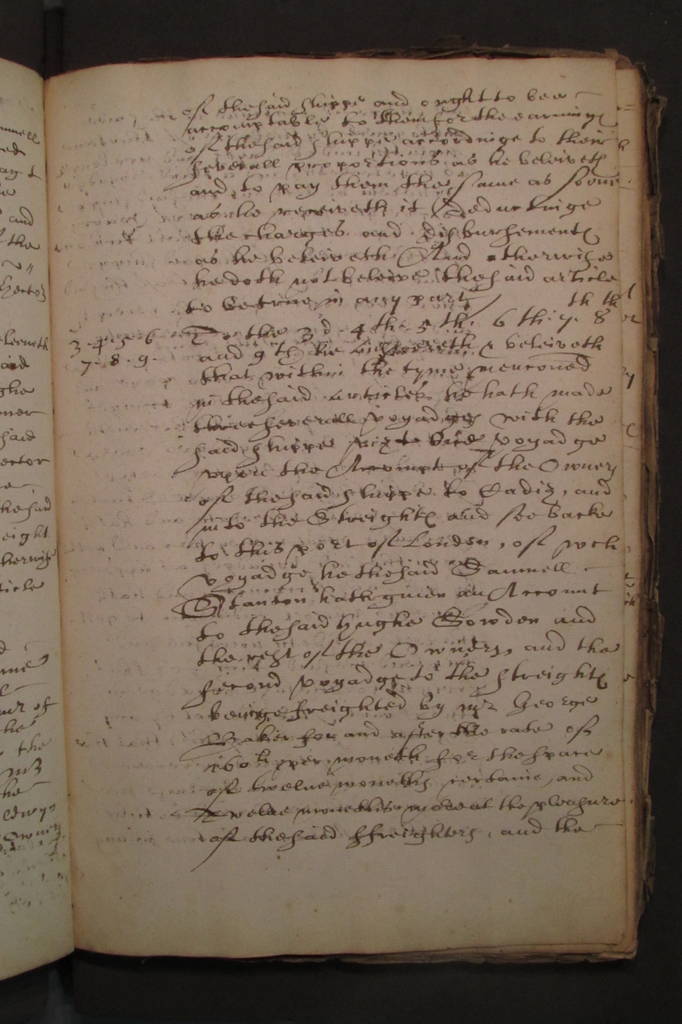 of the said shippe and ought to bee
accomptable to them for the earninge
of the said shippe accordinge to their
severall proportions as he beleiveth
and to pay them the same as soone
as he receiveth it deductinge
the charges and disbursements
as he beleiveth And otherwise
he doth not beleive the said article
to be true in any part
3. 4. 5. 6
7. 8. 9.
To the 3d. 4th. 5th. 6th. 7. 8
and 9th he beleiveth
that within the tyme mencioned
in the said Articles he hath made
three severall voyadges with the
said shippe voyadge
upon the Accompt of the Owners
of the said shippe to Cadiz, and
into the Streights and soe backe
to this port of London, of wch
voyadge he the said Samuell
Stanton hath given an Account
to the said Hughe Sowden and
the rest of the Owners, and the
second voyadge to the streights
beinge freighted by mr George
Baker for and after the rate of
160li per moneth for the space
of twelve moneths certaine, and
twelve moneths more at the pleasure
of the said ffreighters, and the
ector
said
Owners
the